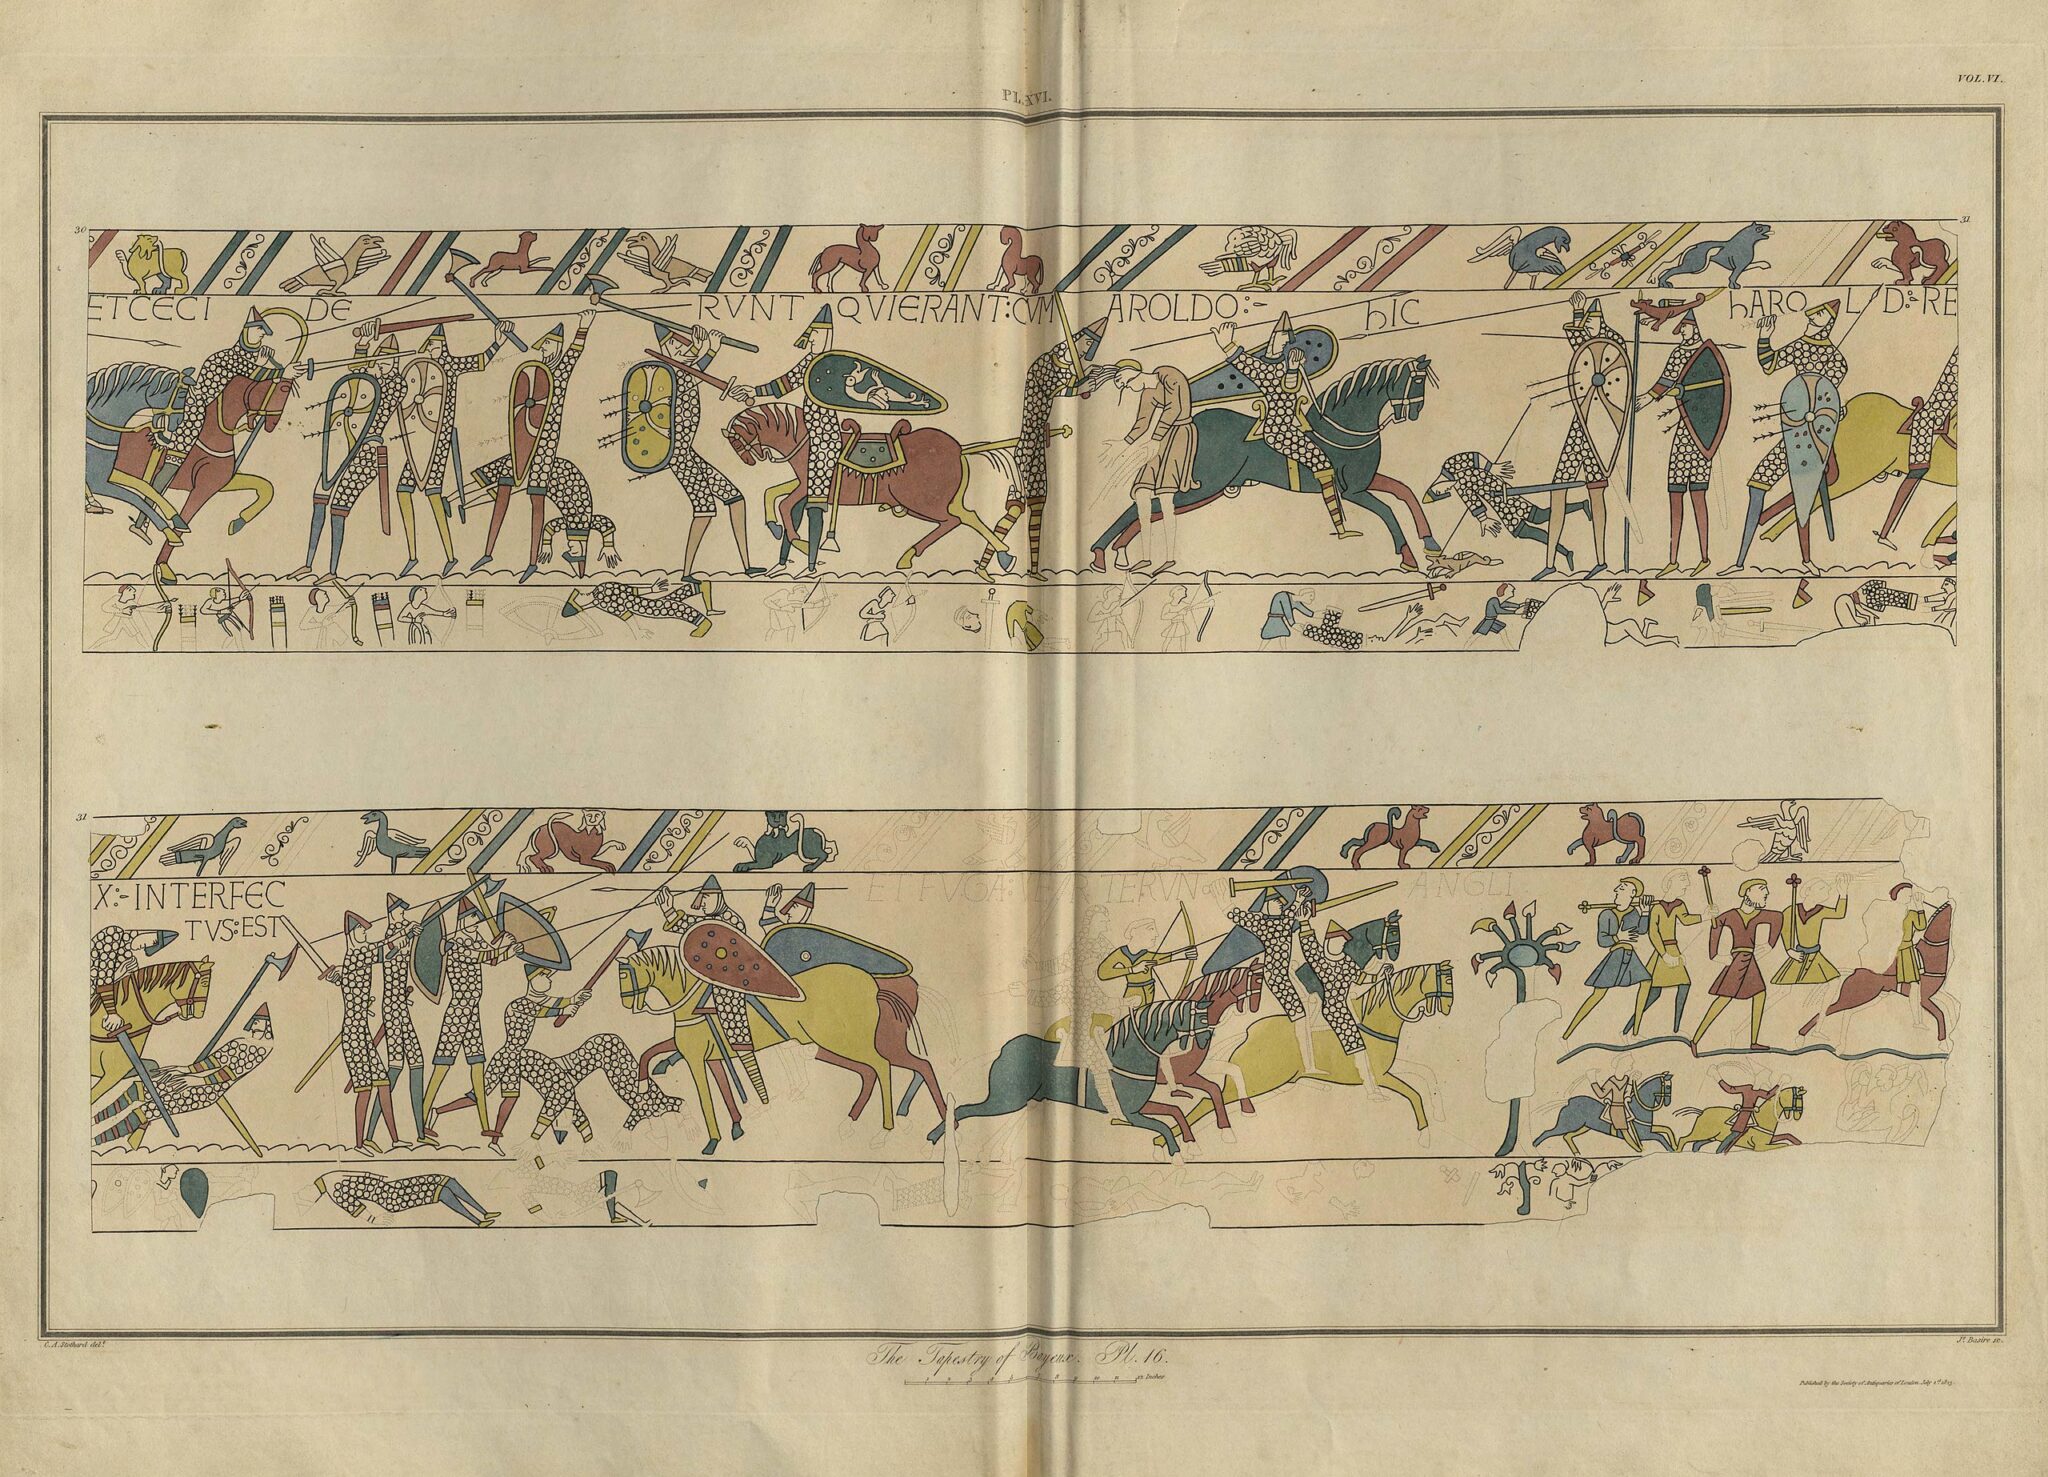 VOL. VI.
PL. XVI.
30
31
ET CECI DE RVNT QVIERANT: CVM AROLDO:- hIC hARO L D:- RE
31
X:- INTERFEC
TVS: EST
ET FVGA: VERTERVNT ANGLI
C. A. Stothard delt.
Js. Basire sc.
The Tapestry of Bayeux. Pl. 16.
12 Inches
Published by the Society of Antiquaries of London July 1st